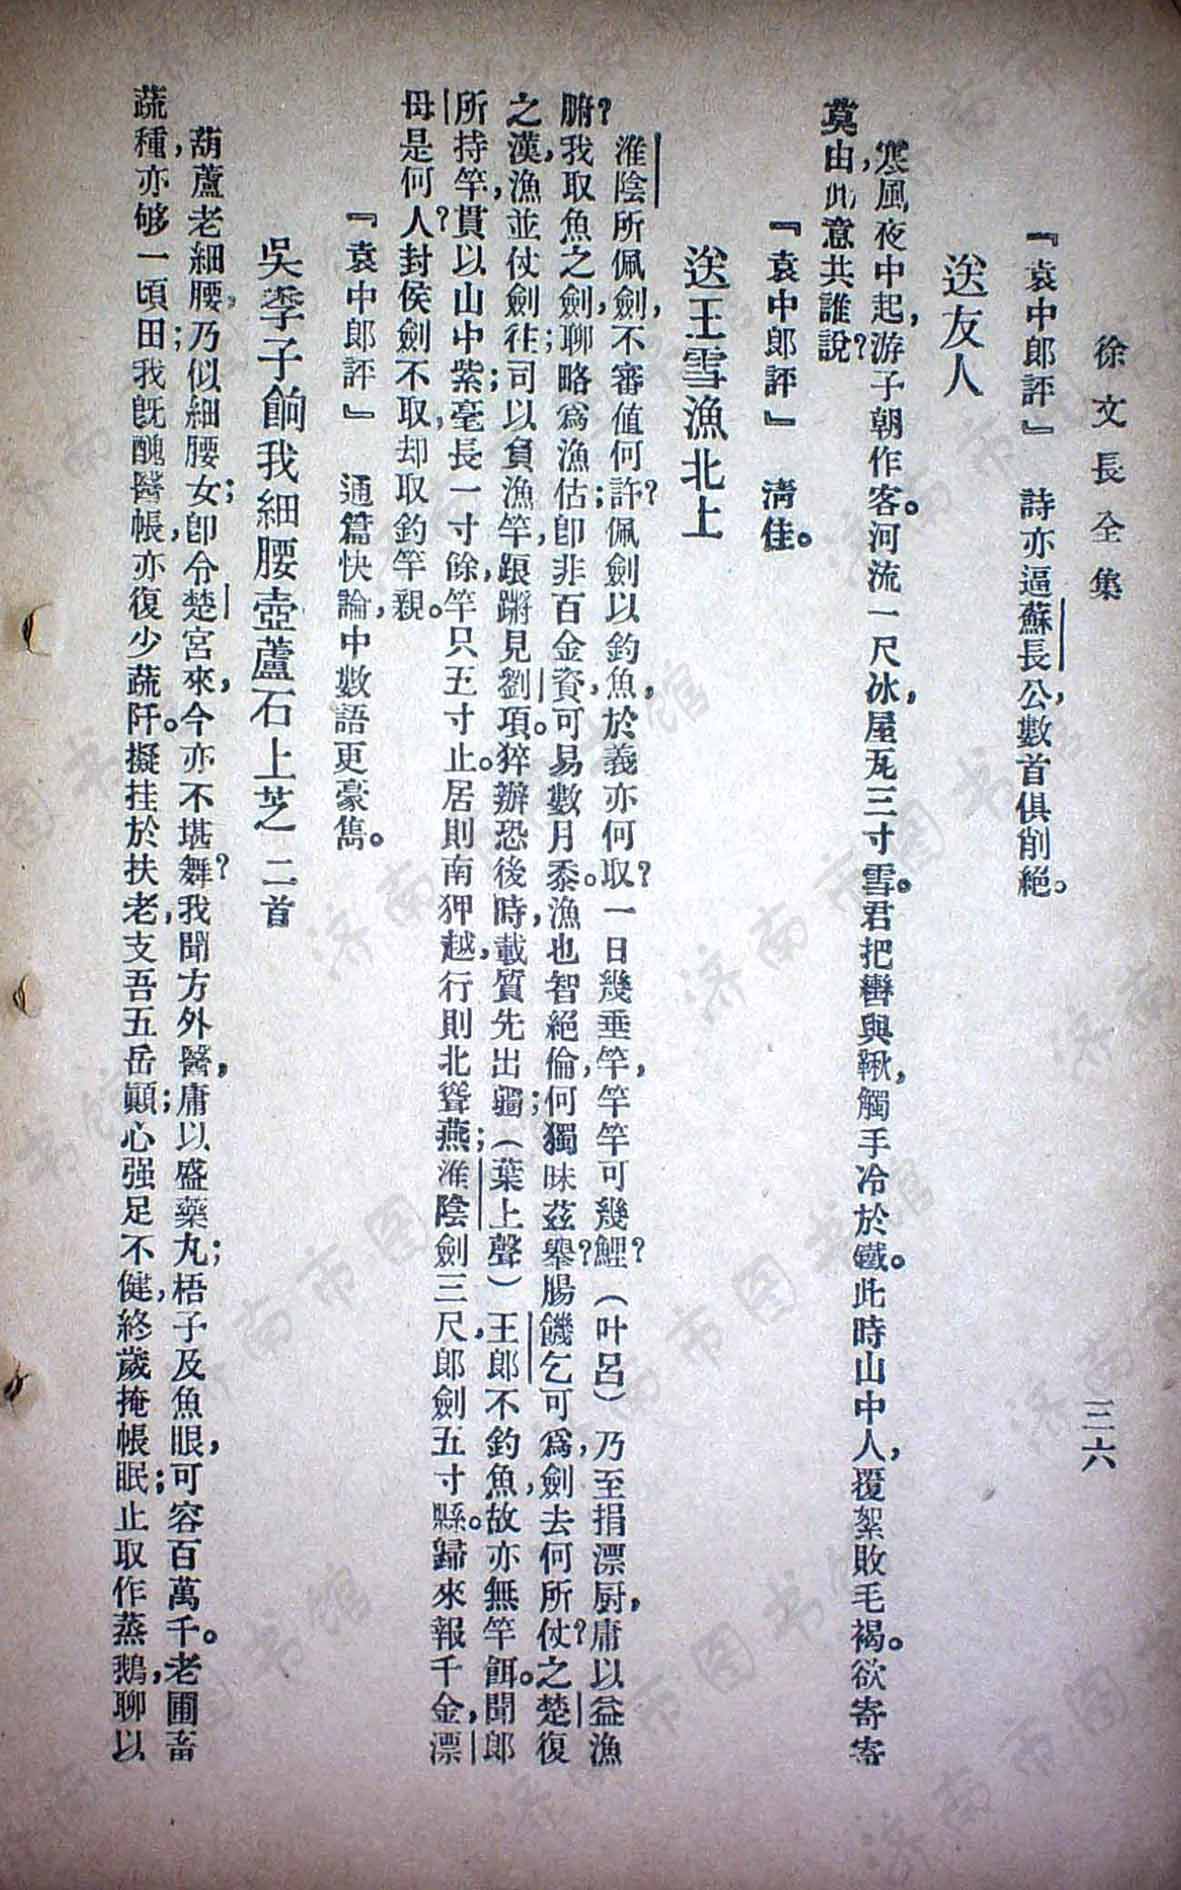 徐文長全集
三六
『袁中郎評』 詩亦逼蘇長公,數首俱削絕。
送友人
寒風夜中起,游子朝作客。河流一尺冰,屋瓦三寸雪。君把轡與鞦,觸手冷於鐵。此時山中人,覆絮敗毛褐。欲寄寄
莫由,此意共誰說?
『袁中郎評』 清佳。
送王雪漁北上
淮陰所佩劍,不審值何許?佩劍以釣魚,於義亦何取?一日幾垂竿,竿竿可幾鯉?(叶呂)乃至捐漂厨,庸以益漁
腑?我取魚之劍,聊略爲漁估;卽非百金資,可易數月黍。漁也智絕倫,何獨昧茲舉?腸饑乞可爲,劍去何所仗?之楚復
之漢,漁並仗劍往;司以負漁竿,踉蹡見劉項。猝辦恐後時,載質先出疆;(葉上聲)王郎不釣魚,故亦無竿餌。聞郎
所持竿,貫以山中紫,毫長一寸餘,竿只五寸止。居則南狎越,行則北聳燕;淮陰劍三尺,郎劍五寸縣。歸來報千金,漂
母是何人?封侯劍不取,却取釣竿親。
『袁中郎評』 通篇快論,中數語更豪雋。
吳季子餉我細腰壺蘆石上芝 二首
葫蘆老細腰,乃似細腰女;卽令楚宮來,今亦不堪舞?我聞方外醫,庸以盛藥丸;梧子及魚眼,可容百萬千。老圃畜
蔬種,亦够一頃田;我旣醜醫帳,亦復少蔬阡。擬挂於扶老,支吾五岳顚;心强足不健,終歲掩帳眠;止取作蒸鵝,聊以
济南市图书馆